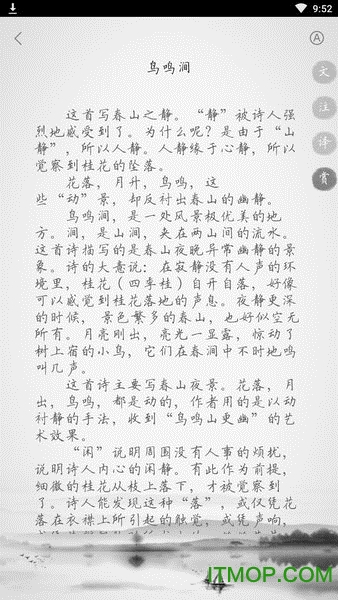 9:52
A
鸟鸣涧
文
注
译
赏
这首写春山之静。“静”被诗人强
烈地感受到了。为什么呢？是由于“山
静”，所以人静。人静缘于心静，所以
觉察到桂花的坠落。
花落，月升，鸟鸣，这
些“动”景，却反衬出春山的幽静。
鸟鸣涧，是一处风景极优美的地
方。涧，是山涧，夹在两山间的流水。
这首诗描写的是春山夜晚异常幽静的景
象。诗的大意说：在寂静没有人声的环
境里，桂花（四季桂）自开自落，好像
可以感觉到桂花落地的声息。夜静更深
的时候，景色繁多的春山，也好似空无
所有。月亮刚出，亮光一显露，惊动了
树上宿的小鸟，它们在春涧中不时地鸣
叫几声。
这首诗主要写春山夜景。花落，月
出，鸟鸣，都是动的，作者用的是以动
衬静的手法，收到“鸟鸣山更幽”的艺
术效果。
“闲”说明周围没有人事的烦扰，
说明诗人内心的闲静。有此作为前提，
细微的桂花从枝上落下，才被觉察到
了。诗人能发现这种“落”，或仅凭花
落在衣襟上所引起的触觉，或凭声响，
ITMOP.COM